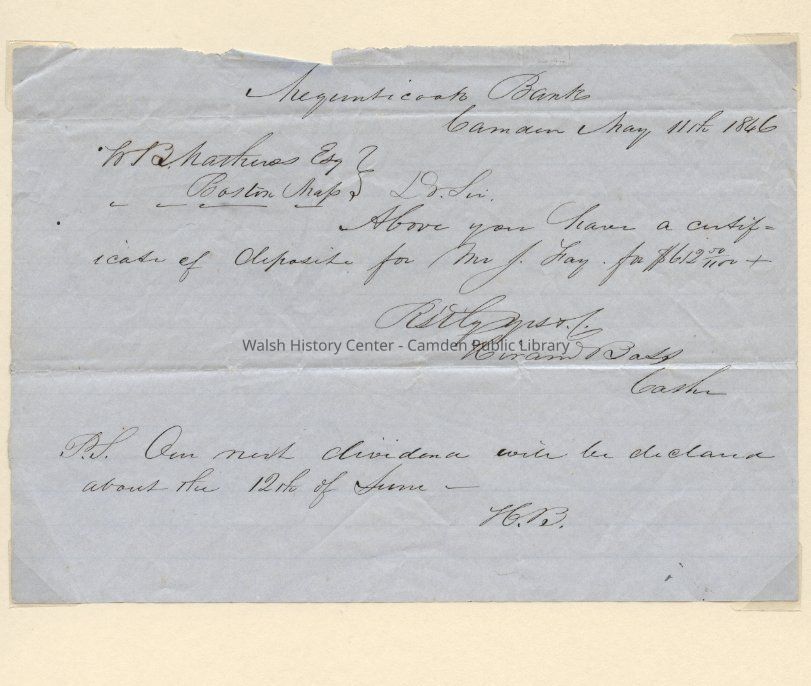 Megunticook Bank
Camden May 11th 1846
W B. Mathews Esq
Boston Mass } Dr. Sir.
Above you have a certif=
icate of deposite for Mr J. Fay. for $612 50/100 +
Rstly yrs &c.
Walsh History Center - Camden Public Library
Hiram Bass
Cashr
P.S. Our next dividend will be declared
about the 12th of June –
H.B.